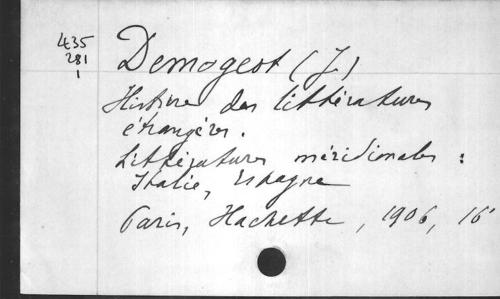 435
281
1
Demogeot (J)
Histoire des littératures
étrangères.
Littératures méridionales :
Italie, Espagne
Paris, Hachette, 1906, 16°